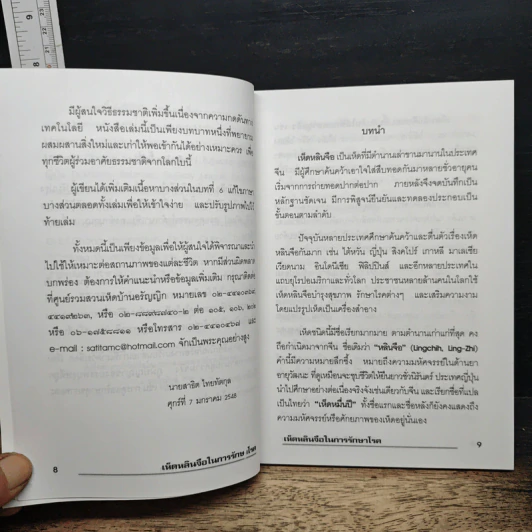 มีผู้สนใจวิธีธรรมชาติเพิ่มขึ้นเนื่องจากความกดดันทาง
เทคโนโลยี หนังสือเล่มนี้เป็นเพียงบทบาทหนึ่งที่พยายาม
ผสมผสานสิ่งใหม่และเก่าให้พอเข้ากันได้อย่างเหมาะควร เพื่อ
ทุกชีวิตผู้ร่วมอาศัยธรรมชาติจากโลกใบนี้
ผู้เขียนได้เพิ่มเติมเนื้อหาบางส่วนในบทที่ 6 แก้ไขภาษา
บางส่วนตลอดทั้งเล่มเพื่อให้เข้าใจง่าย และปรับรูปภาพไปไว้
ท้ายเล่ม
ทั้งหมดนี้เป็นเพียงข้อมูลเพื่อให้ผู้สนใจได้พิจารณาและนำ
ไปใช้ให้เหมาะต่อสถานภาพของแต่ละชีวิต หากมีส่วนผิดพลาด
บกพร่อง ต้องการให้คำแนะนำหรือข้อมูลเพิ่มเติม กรุณาติดต่อ
ที่ศูนย์รวมสวนเห็ดบ้านอรัญญิก หมายเลข
หรือ ต่อ
หรือ หรือโทรสาร และ
e-mail : satitamc@hotmail.com จักเป็นพระคุณอย่างสูง
นายสาธิต ไทยทัตกุล
ศุกร์ที่ 7 มกราคม 2548
8
เห็ดหลินจือในการรักษาโรค
บทนำ
เห็ดหลินจือ เป็นเห็ดที่มีตำนานเล่าขานมานานในประเทศ
จีน มีผู้ศึกษาค้นคว้าเอาใจใส่สืบทอดกันมาหลายชั่วอายุคน
เริ่มจากการถ่ายทอดปากต่อปาก ภายหลังจึงจดบันทึกเป็น
หลักฐานชัดเจน มีการพิสูจน์ยืนยันและทดลองประกอบเป็น
ขั้นตอนตามลำดับ
ปัจจุบันหลายประเทศศึกษาค้นคว้าและตื่นตัวเรื่องเห็ด
หลินจือกันมาก เช่น ไต้หวัน ญี่ปุ่น สิงคโปร์ เกาหลี มาเลเซีย
เวียดนาม อินโดนีเซีย ฟิลิปปินส์ และอีกหลายประเทศใน
แถบยุโรปอเมริกาและทั่วโลก ประชาชนหลายล้านคนในโลกใช้
เห็ดหลินจือบำรุงสุขภาพ รักษาโรคต่างๆ และเสริมความงาม
โดยแปรรูปเห็ดเป็นเครื่องสำอาง
เห็ดชนิดนี้มีชื่อเรียกมากมาย ตามตำนานเก่าแก่ที่สุด คง
ถือกำเนิดมาจากจีน ชื่อเดิมว่า "หลินจือ" (Lingchih, Ling-Zhi)
คำนี้มีความหมายลึกซึ้ง หมายถึงความมหัศจรรย์ในด้านยา
อายุวัฒนะ ที่ดูเหมือนจะชุบชีวิตให้ยืนยาวชั่วนิรันดร์ ประเทศญี่ปุ่น
นำไปศึกษาอย่างต่อเนื่องจริงจังเช่นเดียวกับจีน และเรียกชื่อที่แปล
เป็นไทยว่า "เห็ดหมื่นปี" ทั้งชื่อแรกและชื่อหลังก็ยังคงแสดงถึง
ความมหัศจรรย์หรือศักยภาพของเห็ดที่มีอยู่นั่นเอง
เห็ดหลินจือในการรักษาโรค
9